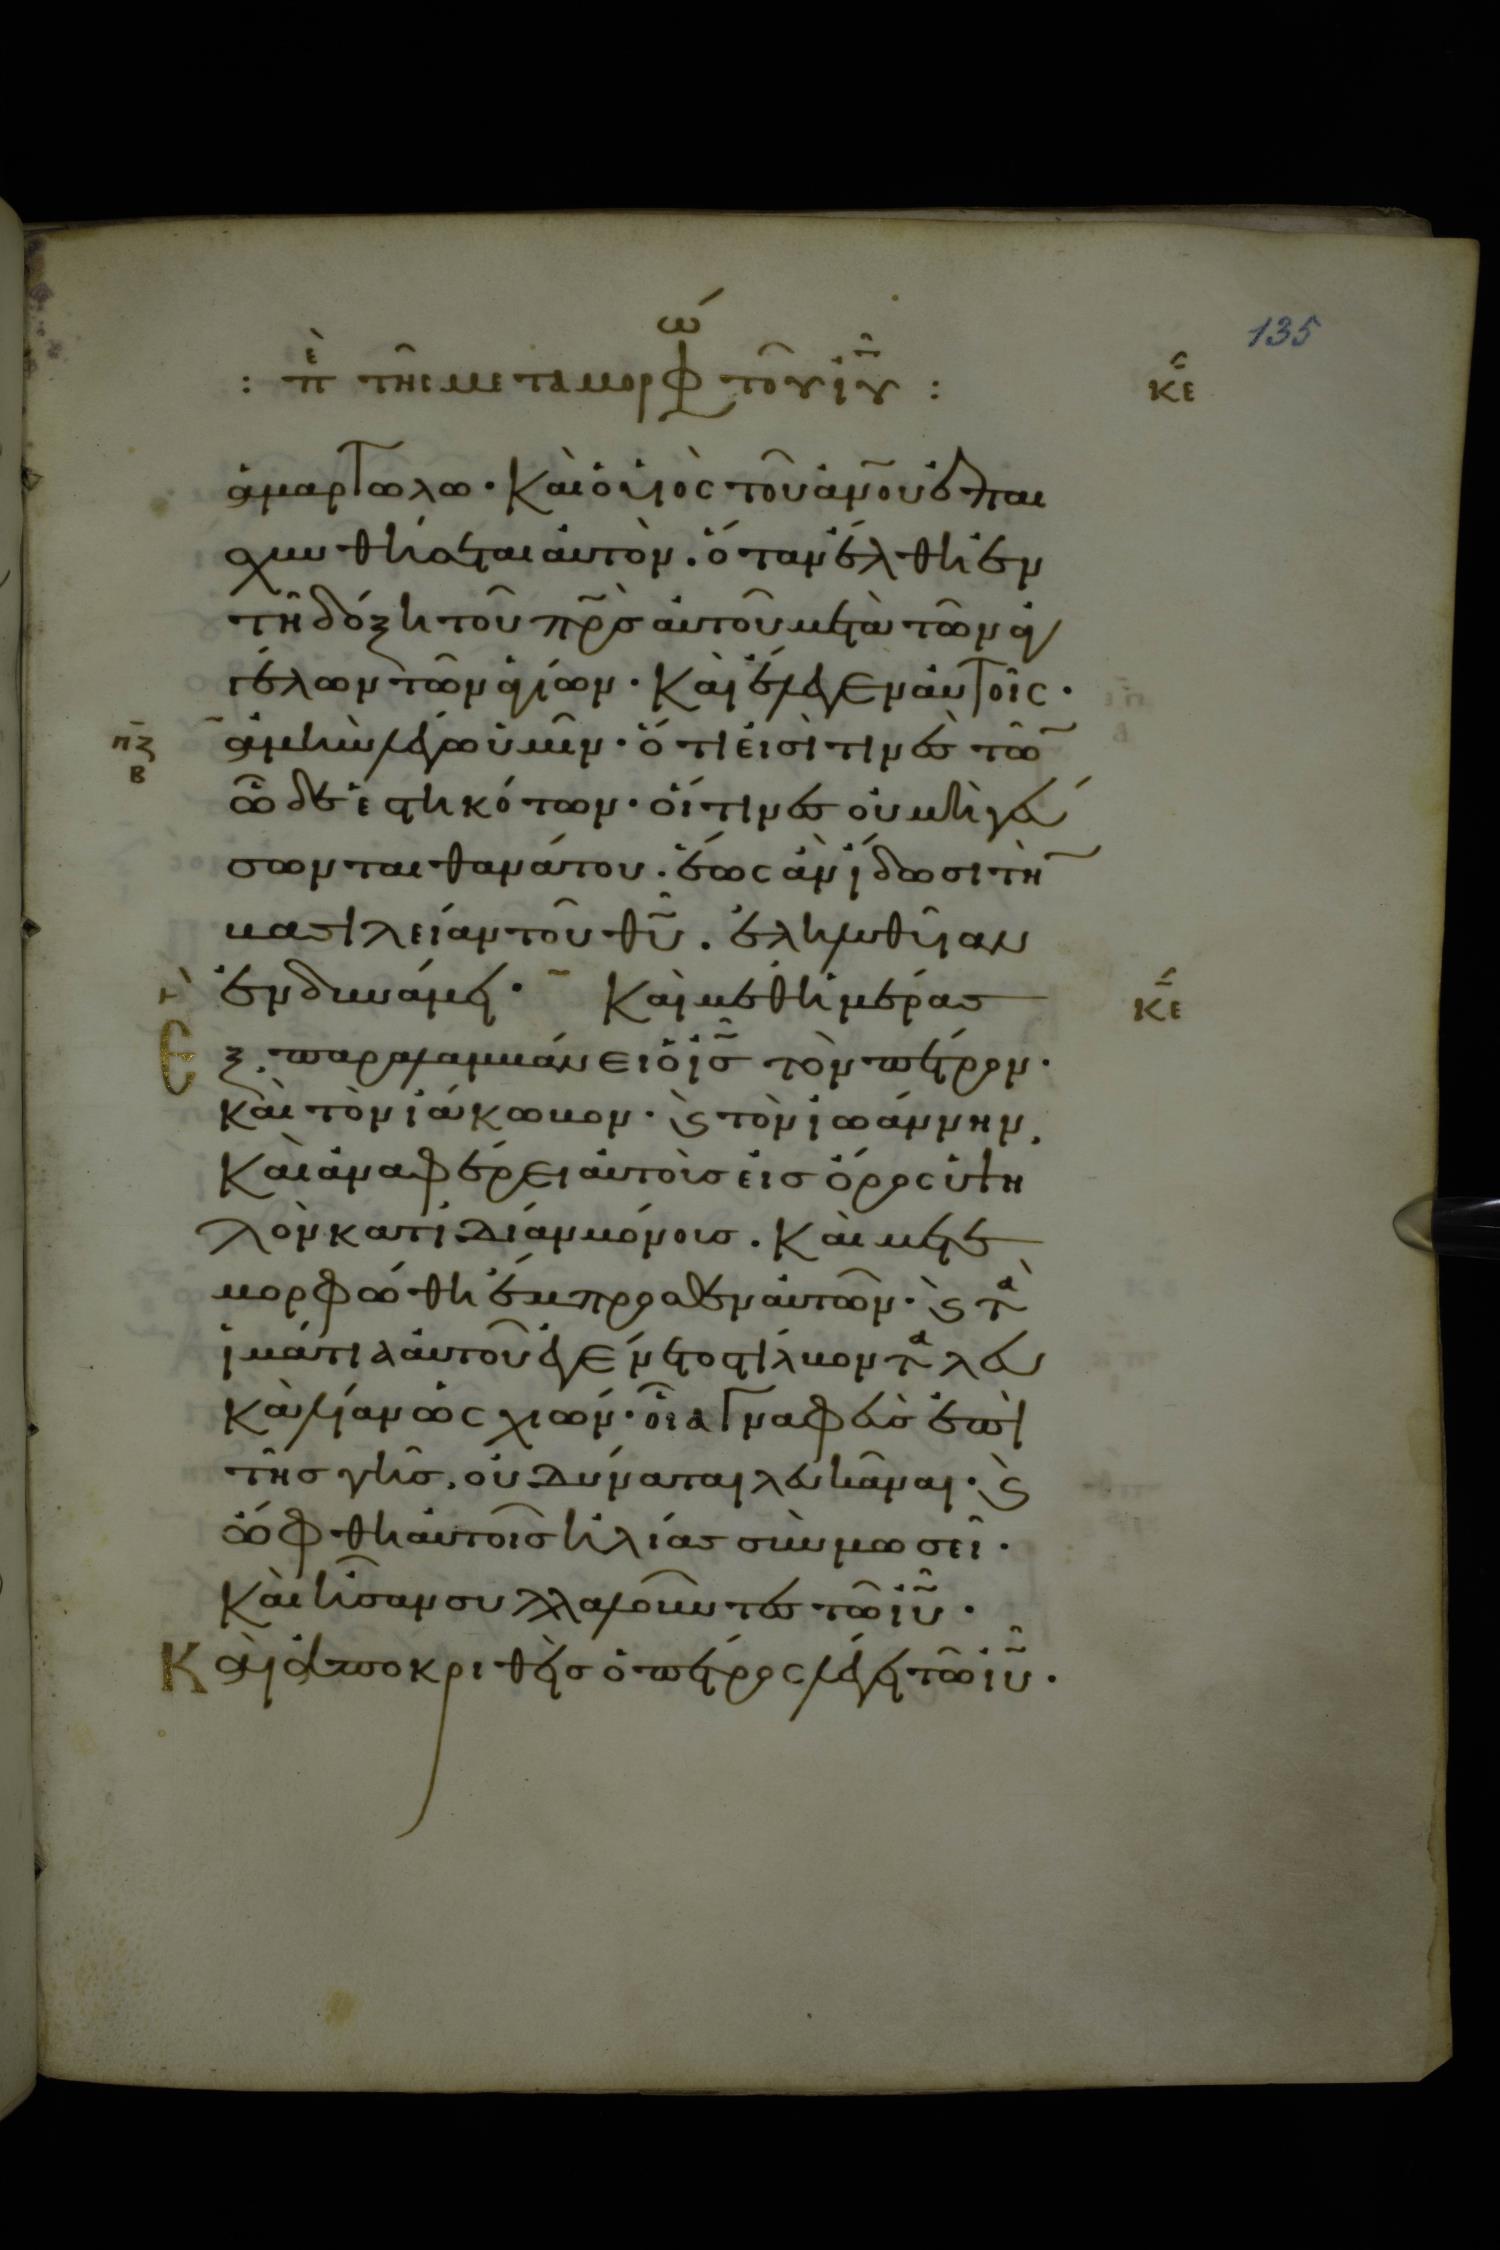 135
: πὲ τῆς μεταμορφώ τοῦ ἰῦ :
κε
ἁμαρτωλῶ· Καὶ ὁ υἱὸς τοῦ ἀνου ἐπαι
σχυνθήσεται αὐτὸν. ὅταν ἔλθη ἐν
τῆ δόξη τοῦ πρσ αὐτοῦ μετὰ τῶν ἀγ
γέλων τῶν ἁγίων· Καὶ ἔλεγεν αὐτοῖς·
πζ
β
ἀμὴν λέγω ὑμῖν· ὅτι εἰσί τινὲς τῶ
ὧδε ἑστηκότων· οἵτινες οὐ μὴ γεύ
σωνται θανάτου. ἕως ἂν ἴδωσι τὴ
βασιλείαν τοῦ θυ. ἐληλυθῦιαν
ἐν δυνάμει· Καὶ μεθ ἡμέρας
κε
Ἓ
ξ. παραλαμβάνει ὁ ισ τὸν πέτρον·
καὶ τὸν ἰάκωβον· ϗ τὸν ἰωάννην.
Καὶ ἀναφέρει αὐτοὺς εἰς ὄρος ὑψη
λὸν κατιδίαν μόνους. Καὶ μετε
μορφώθη ἔμπροσθεν αὐτῶν· ϗ τὰ
ἱμάτια αὐτοῦ ἐγένετο στίλβοντα λευ
κὰ λίαν ὡς χιών· οἷα γναφεὺς ἐπὶ
τῆς γῆς. οὐ δύναται λευκᾶναι· ϗ
ὤφθη αὐτοῖς ἡλίας σὺν μωσεῖ·
Καὶ ἦσαν συλλαλοῦντες τῶ ιυ·
Καὶ ἀποκριθεὶς ὁ πέτρος λέγει τῶ ιυ·